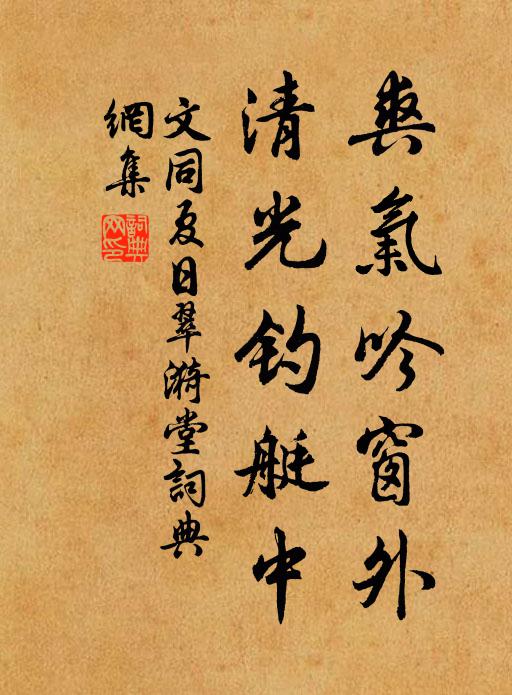 爽氣吟窗外
清光釣艇中
文同夏日翠漪堂詞典
網集
詞典網印